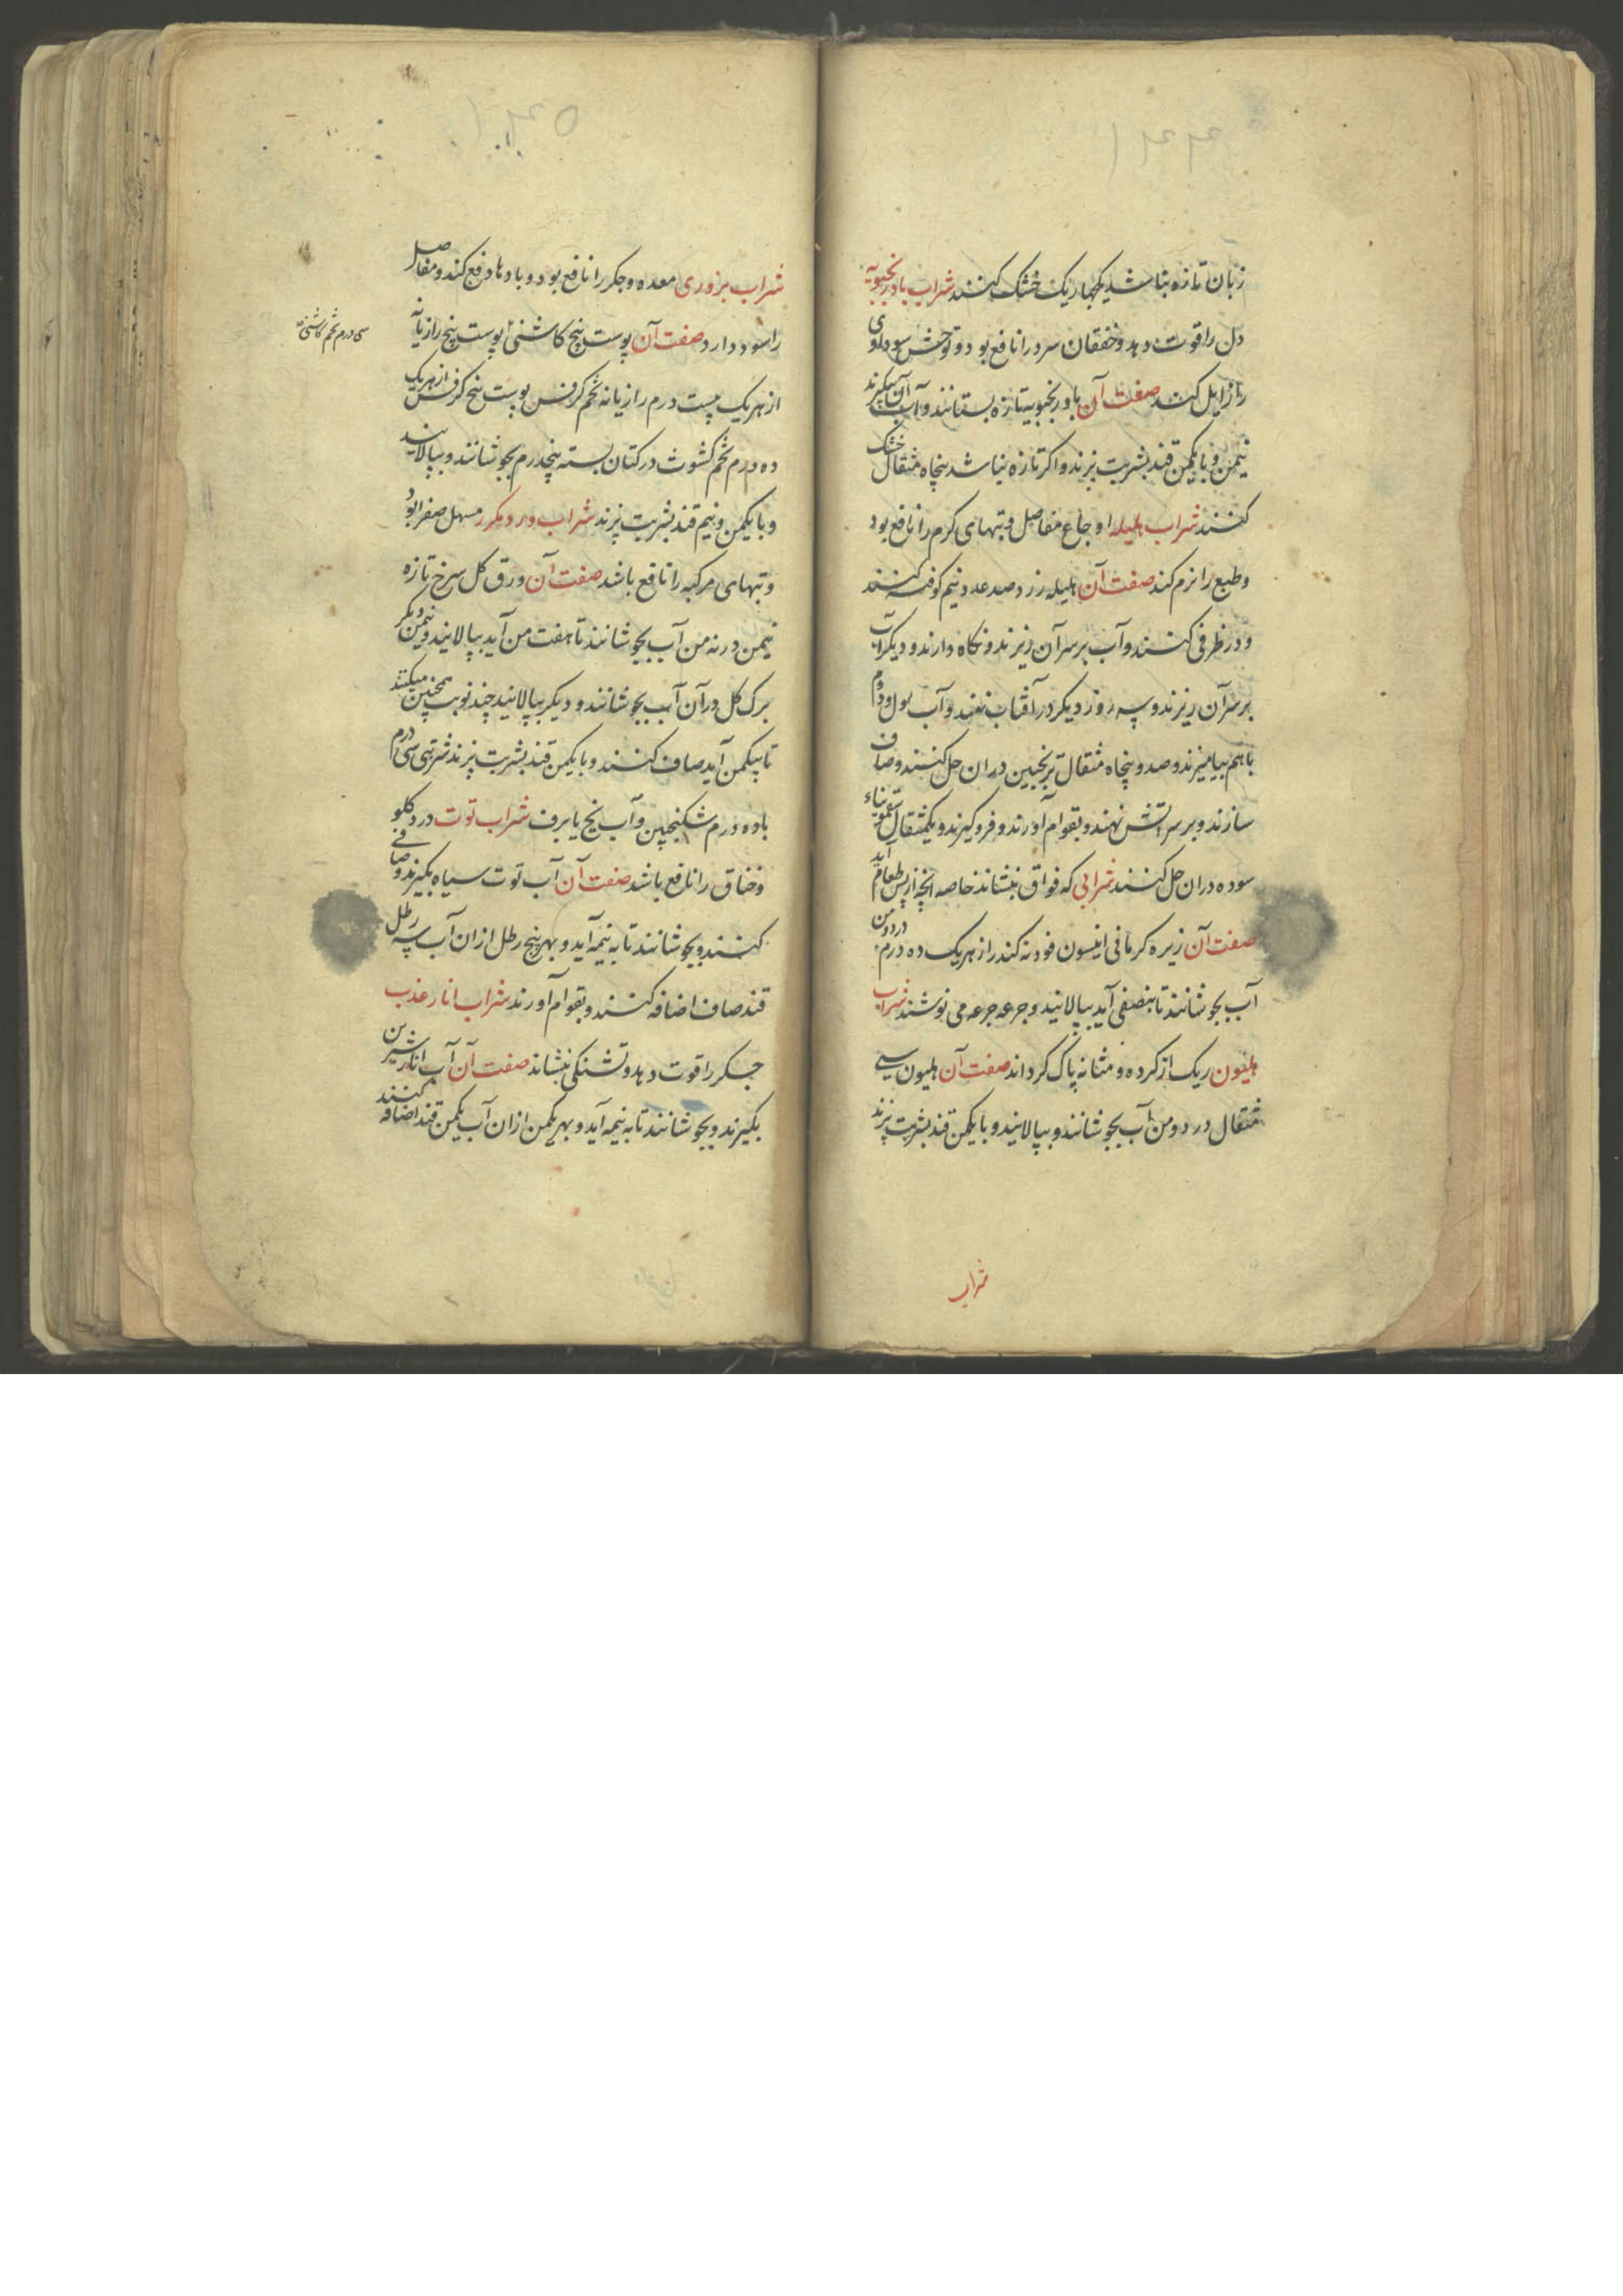 زبان تازه نباشد یکچهاریک خشک کنند شراب بادرنجبویه
دل را قوت دهد و خفقان سرد را نافع بود و توحش سوداوی
را زایل کند صفت آن بادرنجبویه تازه بستانند و آب آن بگیرند
نیمن و با یکمن قند بشربت پزند و اکر تازه نباشد پنجاه مثقال خشک
کنند شراب هلیله اوجاع مفاصل و تبهای کرم را نافع بود
و طبع را نرم کند صفت آن هلیله زرد صد عدد نیم کوفته کنند
و در ظرفی کنند و آب بر سر آن ریزند و نکاه دارند و دیکر آب
بر سر آن ریزند و سه روز دیکر در آفتاب نهند و آب اول و دوم
باهم بیامیزند و صد و پنجاه مثقال ترنجبین دران حل کنند و صاف
سازند و بر سر آتش نهند و بقوام آورند و فروکیرند و یکمثقال سقمونیاء
سوده دران حل کنند شرابی که فواق بنشاند خاصه آنچه از پس طعام آید
صفت آن زیره کرمانی انیسون فودنه کندر از هر یک ده درم در دو من
آب بجوشانند تا بنصفی آید بپالانید و جرعه جرعه می نوشند شراب
هلیون ریک از کرده و مثانه پاک کرداند صفت آن هلیون سی
مثقال در دو من آب بجوشانند و بپالانید و با یکمن قند بشربت پزند
شراب
شراب بزوری معده و جکر را نافع بود و بادها دفع کند و مفاصل
را سود دارد صفت آن پوست بیخ کاشنی پوست بیخ رازیانه
سی درم تخم کاشنی
از هر یک بیست درم رازیانه تخم کرفس پوست بیخ کرفس از هر یک
ده درم تخم کشوث در کتان بسته پنجدرم بجوشانند و بپالایند
و با یکمن و نیم قند بشربت پزند شراب ورد مکرر مسهل صفرا بود
و تبهای مرکبه را نافع باشد صفت آن ورق کل سرخ تازه
نیمن در نه من آب بجوشانند تا هفت من آید بپالانید و نیمن دیکر
برک کل در آن آب بجوشانند و دیکر بپالانید چند نوبت همچنین میکنند
تا بیکمن آید صاف کنند و با یکمن قند بشربت پزند شربتی سی درم
با ده درم سکنجبین و آب یخ یا برف شراب توت درد کلو
و خناق را نافع باشد صفت آن آب توت سیاه بکیرند و صافی
کنند و بجوشانند تا به نیمه آید و بهر پنج رطل ازان آب سه رطل
قند صاف اضافه کنند و بقوام آورند شراب انار عذب
جکر را قوت دهد و تشنکی بنشاند صفت آن آب انار شیرین
بکیرند و بجوشانند تا به نیمه آید و بهر یکمن ازان آب یکمن قند اضافه کنند